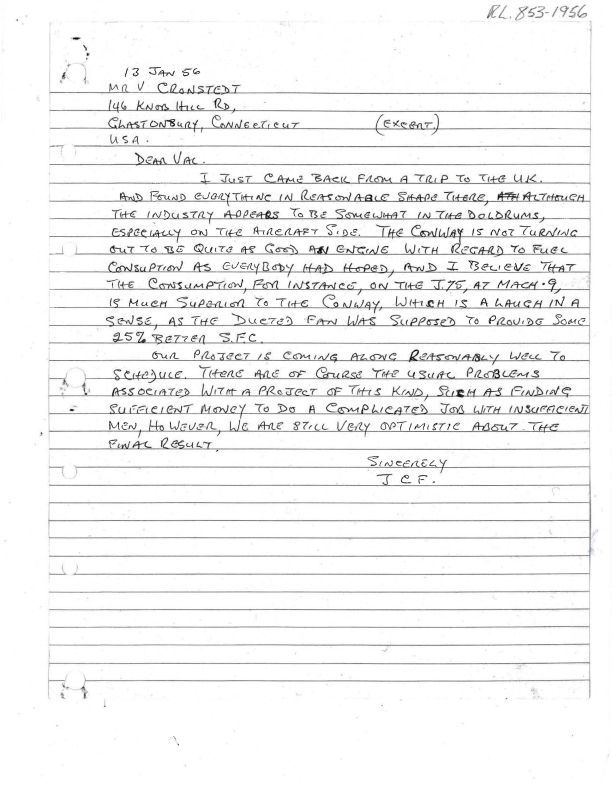 RL. 853-1956
13 JAN 56
MR V CRONSTEDT
146 KNOB HILL RD,
GLASTONBURY, CONNECTICUT (EXCERT)
USA.
DEAR VAL.
I JUST CAME BACK FROM A TRIP TO THE UK.
AND FOUND EVERYTHING IN REASONABLE SHAPE THERE, ALTHOUGH
THE INDUSTRY APPEARS TO BE SOMEWHAT IN THE DOLDRUMS,
ESPECIALLY ON THE AIRCRAFT SIDE. THE CONWAY IS NOT TURNING
OUT TO BE QUITE AS GOOD AN ENGINE WITH REGARD TO FUEL
CONSUPTION AS EVERYBODY HAD HOPED, AND I BELIEVE THAT
THE CONSUMPTION, FOR INSTANCE, ON THE J.75, AT MACH .9,
IS MUCH SUPERIOR TO THE CONWAY, WHICH IS A LAUGH IN A
SENSE, AS THE DUCTED FAN WAS SUPPOSED TO PROVIDE SOME
25% BETTER S.F.C.
OUR PROJECT IS COMING ALONG REASONABLY WELL TO
SCHEDULE. THERE ARE OF COURSE THE USUAL PROBLEMS
ASSOCIATED WITH A PROJECT OF THIS KIND, SUCH AS FINDING
SUFFICIENT MONEY TO DO A COMPLICATED JOB WITH INSUFFICIENT
MEN, HOWEVER, WE ARE STILL VERY OPTIMISTIC ABOUT THE
FINAL RESULT.
SINCERELY
J C F.